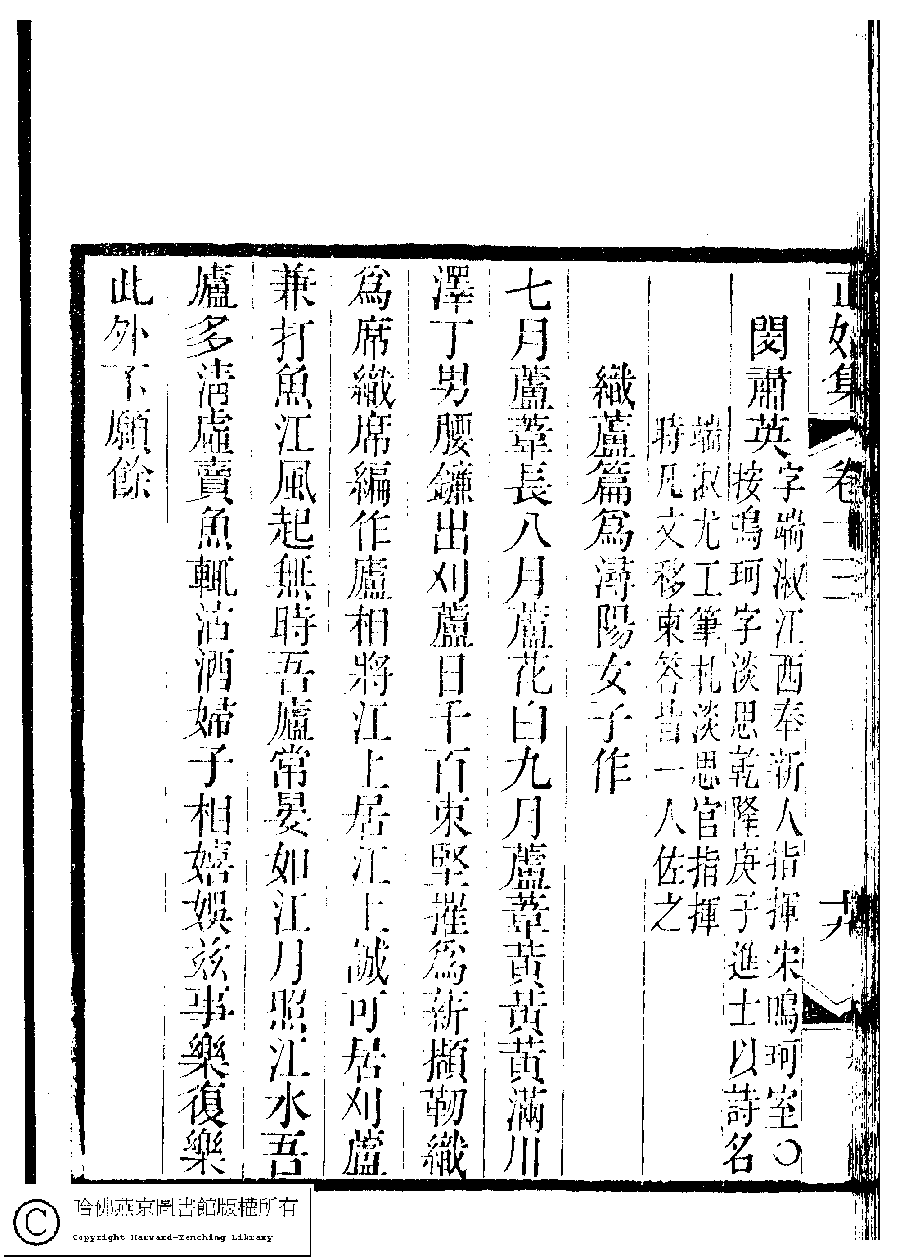 正始集 卷十三 十九
閔肅英
字端淑江西奉新人指揮宋鳴珂室〇
按鳴珂字淡思乾隆庚子進士以詩名
端淑尤工筆札淡思官指揮
時凡文移柬答皆一人佐之
織蘆篇爲潯陽女子作
七月蘆葦長八月蘆花白九月蘆葦黃黃黃滿川
澤丁男腰鐮出刈蘆日千百束堅摧爲薪擷韌織
爲席織席編作廬相將江上居江上誠可居刈蘆
兼打魚江風起無時吾廬常晏如江月照江水吾
廬多淸虛賣魚輒沽酒婦子相嬉娛茲事樂復樂
此外不願餘
哈佛燕京圖書館版權所有
Copyright Harvard-Yenching Library